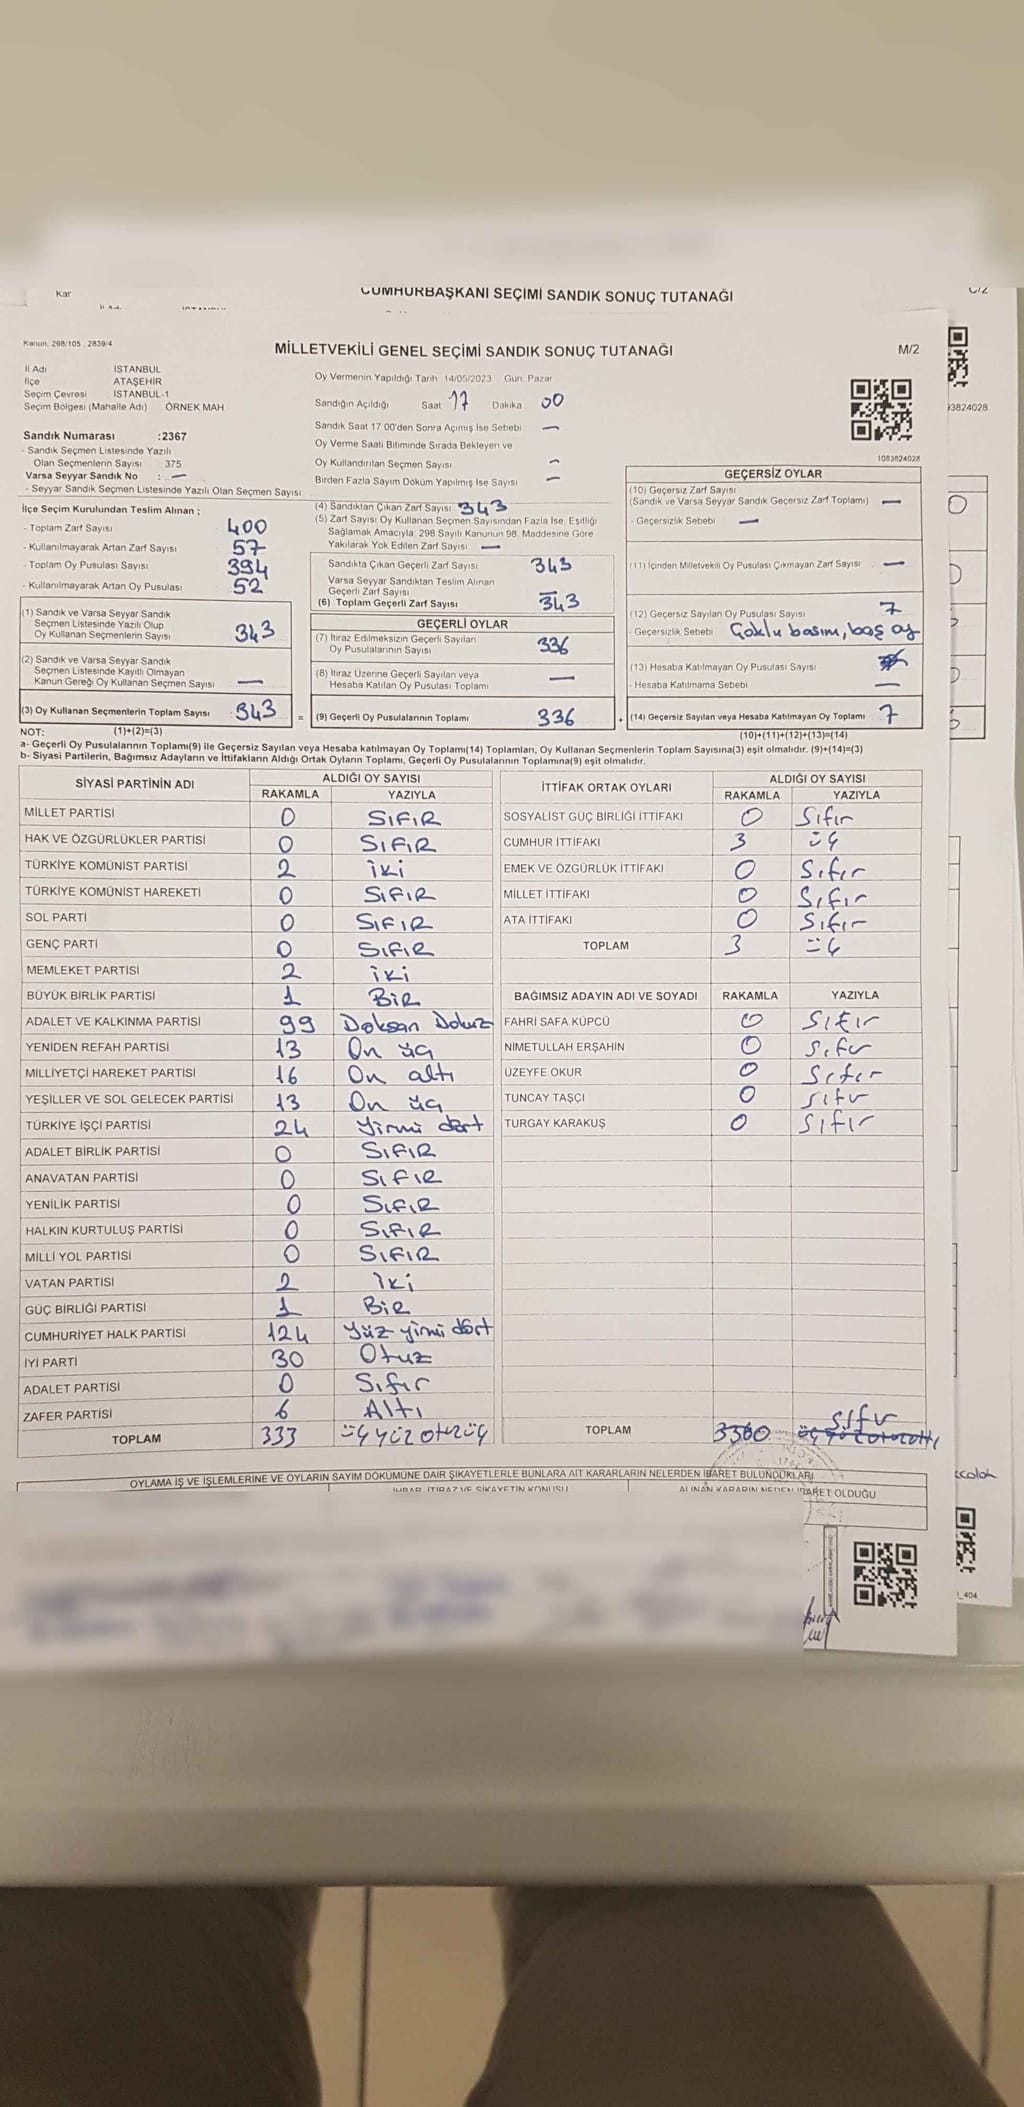 Kar
CUMHURBAŞKANI SEÇİMİ SANDIK SONUÇ TUTANAĞI
C/2
Kanun: 298/105 , 2839/4
MİLLETVEKİLİ GENEL SEÇİMİ SANDIK SONUÇ TUTANAĞI
M/2
İl Adı İSTANBUL
İlçe ATAŞEHİR
Seçim Çevresi İSTANBUL-1
Seçim Bölgesi (Mahalle Adı) ÖRNEK MAH
Sandık Numarası :2367
- Sandık Seçmen Listesinde Yazılı
Olan Seçmenlerin Sayısı 375
Varsa Seyyar Sandık No : —
- Seyyar Sandık Seçmen Listesinde Yazılı Olan Seçmen Sayısı
Oy Vermenin Yapıldığı Tarih 14/05/2023 Gün Pazar
Sandığın Açıldığı Saat 17 Dakika 00
Sandık Saat 17 00'den Sonra Açımış İse Sebebi —
Oy Verme Saati Bitiminde Sırada Bekleyen ve
Oy Kullandırılan Seçmen Sayısı —
Birden Fazla Sayım Döküm Yapılmış İse Sayısı —
1083824028
93824028
İlçe Seçim Kurulundan Teslim Alınan ;
- Toplam Zarf Sayısı 400
- Kullanılmayarak Artan Zarf Sayısı 57
- Toplam Oy Pusulası Sayısı 394
- Kullanılmayarak Artan Oy Pusulası 52
(1) Sandık ve Varsa Seyyar Sandık
Seçmen Listesinde Yazılı Olup
Oy Kullanan Seçmenlerin Sayısı 343
(2) Sandık ve Varsa Seyyar Sandık
Seçmen Listesinde Kayıtlı Olmayan
Kanun Gereği Oy Kullanan Seçmen Sayısı —
(3) Oy Kullanan Seçmenlerin Toplam Sayısı 343 =
(4) Sandıktan Çıkan Zarf Sayısı 343
(5) Zarf Sayısı Oy Kullanan Seçmen Sayısından Fazla İse, Eşitliği
Sağlamak Amacıyla 298 Sayılı Kanunun 98. Maddesine Göre
Yakılarak Yok Edilen Zarf Sayısı —
Sandıkta Çıkan Geçerli Zarf Sayısı 343
Varsa Seyyar Sandıktan Teslim Alınan
Geçerli Zarf Sayısı —
(6) Toplam Geçerli Zarf Sayısı 343
GEÇERLİ OYLAR
(7) İtiraz Edilmeksizin Geçerli Sayılan
Oy Pusulalarının Sayısı 336
(8) İtiraz Üzerine Geçerli Sayılan veya
Hesaba Katılan Oy Pusulası Toplamı —
(9) Geçerli Oy Pusulalarının Toplamı 336 +
GEÇERSİZ OYLAR
(10) Geçersiz Zarf Sayısı
(Sandık ve Varsa Seyyar Sandık Geçersiz Zarf Toplamı) —
- Geçersizlik Sebebi —
(11) İçinden Milletvekili Oy Pusulası Çıkmayan Zarf Sayısı —
(12) Geçersiz Sayılan Oy Pusulası Sayısı 7
- Geçersizlik Sebebi Çoklu basım, boş oy
(13) Hesaba Katılmayan Oy Pusulası Sayısı
- Hesaba Katılmama Sebebi —
(14) Geçersiz Sayılan veya Hesaba Katılmayan Oy Toplamı 7
NOT: (1)+(2)=(3) (10)+(11)+(12)+(13)=(14)
a- Geçerli Oy Pusulalarının Toplamı(9) ile Geçersiz Sayılan veya Hesaba katılmayan Oy Toplamı(14) Toplamları, Oy Kullanan Seçmenlerin Toplam Sayısına(3) eşit olmalıdır. (9)+(14)=(3)
b- Siyasi Partilerin, Bağımsız Adayların ve İttifakların Aldığı Ortak Oyların Toplamı, Geçerli Oy Pusulalarının Toplamına(9) eşit olmalıdır.
SİYASİ PARTİNİN ADI ALDIĞI OY SAYISI
RAKAMLA YAZIYLA
MİLLET PARTİSİ 0 SIFIR
HAK VE ÖZGÜRLÜKLER PARTİSİ 0 SIFIR
TÜRKİYE KOMÜNİST PARTİSİ 2 iki
TÜRKİYE KOMÜNİST HAREKETİ 0 SIFIR
SOL PARTİ 0 SIFIR
GENÇ PARTİ 0 SIFIR
MEMLEKET PARTİSİ 2 iki
BÜYÜK BİRLİK PARTİSİ 1 BiR
ADALET VE KALKINMA PARTİSİ 99 Doksan Dokuz
YENİDEN REFAH PARTİSİ 13 On üç
MİLLİYETÇİ HAREKET PARTİSİ 16 On altı
YEŞİLLER VE SOL GELECEK PARTİSİ 13 On üç
TÜRKİYE İŞÇİ PARTİSİ 24 Yirmi dört
ADALET BİRLİK PARTİSİ 0 SIFIR
ANAVATAN PARTİSİ 0 SIFIR
YENİLİK PARTİSİ 0 SIFIR
HALKIN KURTULUŞ PARTİSİ 0 SIFIR
MİLLİ YOL PARTİSİ 0 SIFIR
VATAN PARTİSİ 2 İki
GÜÇ BİRLİĞİ PARTİSİ 1 BiR
CUMHURİYET HALK PARTİSİ 124 Yüz yirmi dört
İYİ PARTİ 30 Otuz
ADALET PARTİSİ 0 Sıfır
ZAFER PARTİSİ 6 Altı
TOPLAM 333 üç yüz otuz üç
İTTİFAK ORTAK OYLARI ALDIĞI OY SAYISI
RAKAMLA YAZIYLA
SOSYALİST GÜÇ BİRLİĞİ İTTİFAKI 0 Sıfır
CUMHUR İTTİFAKI 3 üç
EMEK VE ÖZGÜRLÜK İTTİFAKI 0 Sıfır
MİLLET İTTİFAKI 0 Sıfır
ATA İTTİFAKI 0 Sıfır
TOPLAM 3 üç
BAĞIMSIZ ADAYIN ADI VE SOYADI RAKAMLA YAZIYLA
FAHRİ SAFA KÜPCÜ 0 SIFIR
NİMETULLAH ERŞAHİN 0 Sıfır
ÜZEYFE OKUR 0 Sıfır
TUNCAY TAŞÇI 0 Sıfır
TURGAY KARAKUŞ 0 SIFIR
TOPLAM 0 Sıfır
OYLAMA İŞ VE İŞLEMLERİNE VE OYLARIN SAYIM DÖKÜMÜNE DAİR ŞİKAYETLERLE BUNLARA AİT KARARLARIN NELERDEN İBARET BULUNDUKLARI
İHBAR, İTİRAZ VE ŞİKAYETİN KONUSU
ALINAN KARARIN NEDEN İBARET OLDUĞU